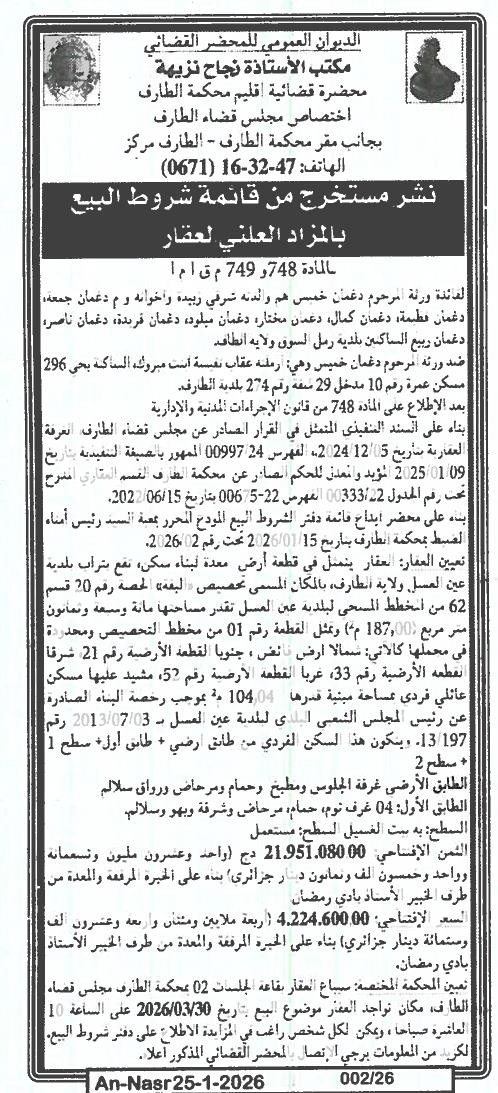 الديوان العمومي للمحضر القضائي
مكتب الأستاذة نجاح نزيهة
محضرة قضائية إقليم محكمة الطارف
اختصاص مجلس قضاء الطارف
بجانب مقر محكمة الطارف – الطارف مركز
الهاتف: 47-32-16 (0671)
نشر مستخرج من قائمة شروط البيع
بالمزاد العلني لعقار
المادة 748 و 749 م ق ا م ا
لفائدة ورثة المرحوم دغمان خميس هم والدته شرفي زبيدة واخوانه و م دغمان جمعة،
دغمان فطيمة، دغمان كمال، دغمان مختار، دغمان ميلود، دغمان فريدة، دغمان ناصر،
دغمان ربيع الساكنين بلدية رمل السوق ولاية الطاف.
ضد ورثة المرحوم دغمان خميس وهي: أرملته عقاب نفيسة أنت مبروك، الساكنة بحي 296
مسكن عمرة رقم 10 مدخل 29 شقة رقم 274 بلدية الطارف.
بعد الإطلاع على المادة 748 من قانون الإجراءات المدنية والإدارية
بناء على السند التنفيذي المتمثل في القرار الصادر عن مجلس قضاء الطارف الغرفة
العقارية بتاريخ 2024/12/05، الفهرس 00997/24 الممهور بالصيغة التنفيذية بتاريخ
2025/01/09 المؤيد والمعدل للحكم الصادر عن محكمة الطارف القسم العقاري
تحت رقم الجدول 00333/22 الفهرس 22-00675 بتاريخ 2022/06/15.
بناء على محضر ايداع قائمة دفتر الشروط البيع المودع المحرر بمعية السيد رئيس أمناء
الضبط بمحكمة الطارف بتاريخ 2026/01/15 تحت رقم 2026/02.
تعيين العقار: العقار يتمثل في قطعة أرض معدة لبناء سكن، تقع بتراب بلدية
عين العسل ولاية الطارف، بالمكان المسمى تخصيص «البقة» الحصة رقم 20 قسم
62 من المخطط المسحي لبلدية عين العسل تقدر مساحتها مائة وسبعة وثمانون
متر مربع (187,00 م²) وتمثل القطعة رقم 01 من مخطط التخصيص ومحدودة
في مجملها كالآتي: شمالا أرض فائض، جنوبا القطعة الأرضية رقم 21، شرقا
القطعة الأرضية رقم 33، غربا القطعة الأرضية رقم 52، مشيد عليها مسكن
عائلي فردي بمساحة مبنية قدرها 104,04 م² بموجب رخصة البناء الصادرة
عن رئيس المجلس الشعبي البلدي لبلدية عين العسل بـ 2013/07/03 رقم
13/197. ويتكون هذا السكن الفردي من طابق ارضي + طابق أول+ سطح 1
+ سطح 2
الطابق الأرضي غرفة الجلوس ومطبخ وحمام ومرحاض ورواق سلالم
الطابق الأول: 04 غرف نوم، حمام، مرحاض وشرفة وبهو وسلالم.
السطح: به بيت الغسيل السطح: مستعمل
الثمن الإفتتاحي: 21.951.080.00 دج (واحد وعشرون مليون وتسعمائة
وواحد وخمسون ألف وثمانون دينار جزائري) بناء على الخبرة المرفقة والمعدة من
طرف الخبير الأستاذ بادي رمضان
السعر الإفتتاحي: 4.224.600.00 (أربعة ملايين ومئتان وأربعة وعشرون ألف
وستمائة دينار جزائري) بناء على الخبرة المرفقة والمعدة من طرف الخبير الأستاذ
بادي رمضان.
تعيين المحكمة المختصة: سيباع العقار بقاعة الجلسات 02 بمحكمة الطارف مجلس قضاء
الطارف، مكان تواجد العقار موضوع البيع بتاريخ 2026/03/30 على الساعة 10
العاشرة صباحا، ويمكن لكل شخص راغب في المزايدة الاطلاع على دفتر شروط البيع.
لمزيد من المعلومات يرجى الإتصال بالمحضر القضائي المذكور أعلاه.
An-Nasr 25-1-2026 002/26